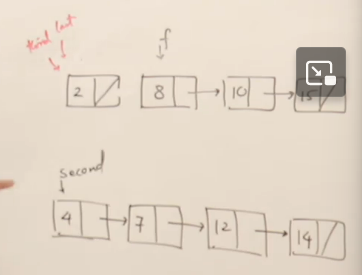 third last f
2 8 10 15
second
4 7 12 14